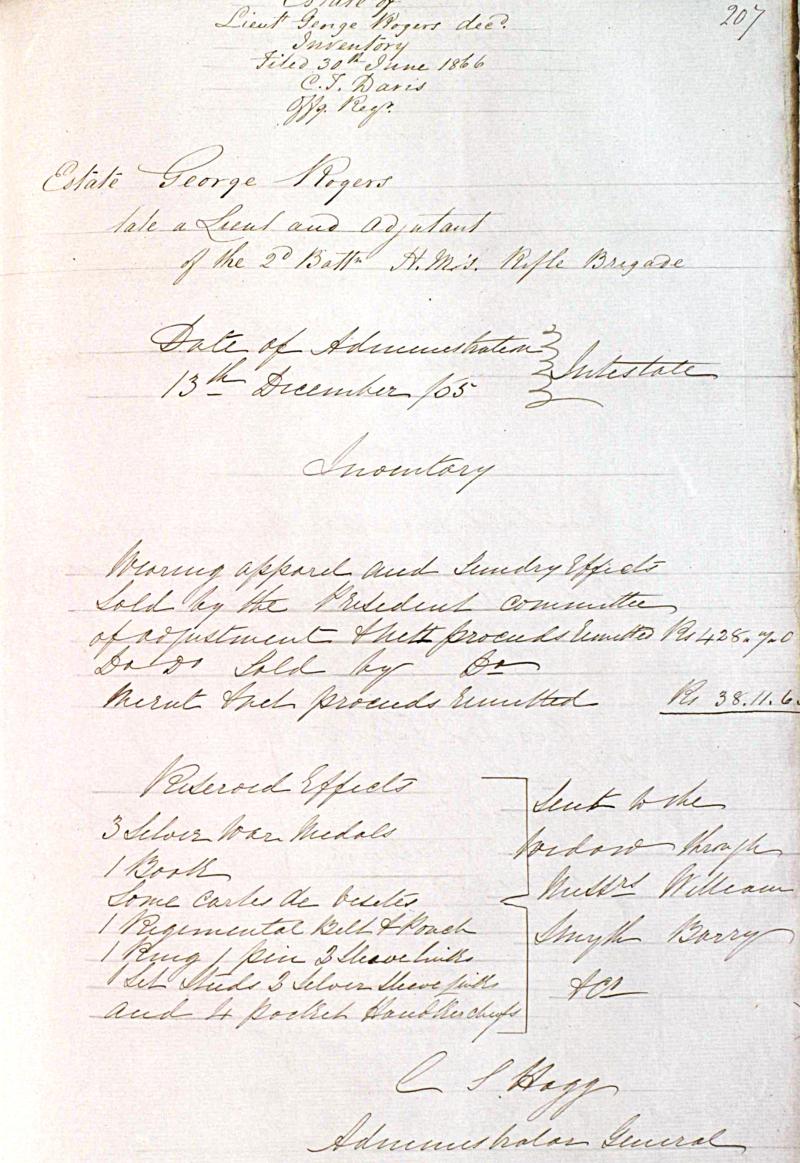 207
Estate of
Lieut George Rogers decd.
Inventory
Filed 30th June 1866
C. T. Davis
Offg. Regr.
Estate George Rogers
late a Lieut and Adjutant
of the 2d Battn H.M's. Rifle Brigade
Date of Administration
13th December /65
Intestate
Inventory
Wearing apparel and Sundry Effects
Sold by the President committee
of adjustment & nett proceeds Remitted Rs 428.7.0
Do Do Sold by Do
Merut & net proceeds Remitted Rs 38.11.6
Reserved Effects
3 Silver War Medals
1 Book
Some cartes de visites
1 Regimental Belt & Pouch
1 Ring 1 pin 2 Sleeve links
1 Set Studs 2 Silver Sleeve links
and 4 pocket Handkerchiefs
Sent to the
widow through
Messrs William
Smyth Barry
& Co
C S. Hogg
Administrator General